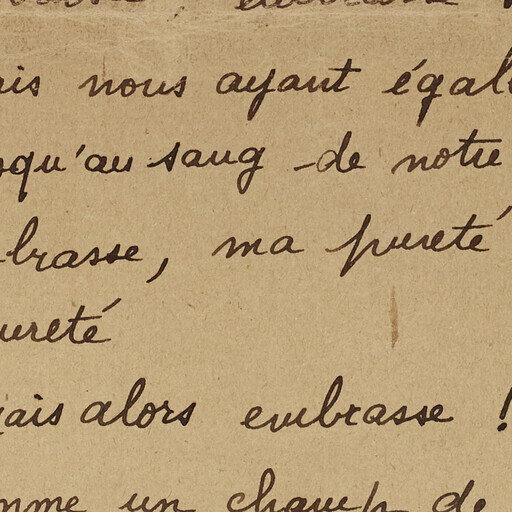 embrasse
ais nous ayant égal
squ'au sang de notre
brasse, ma pureté
ureté
ais alors embrasse !
mme un champ de